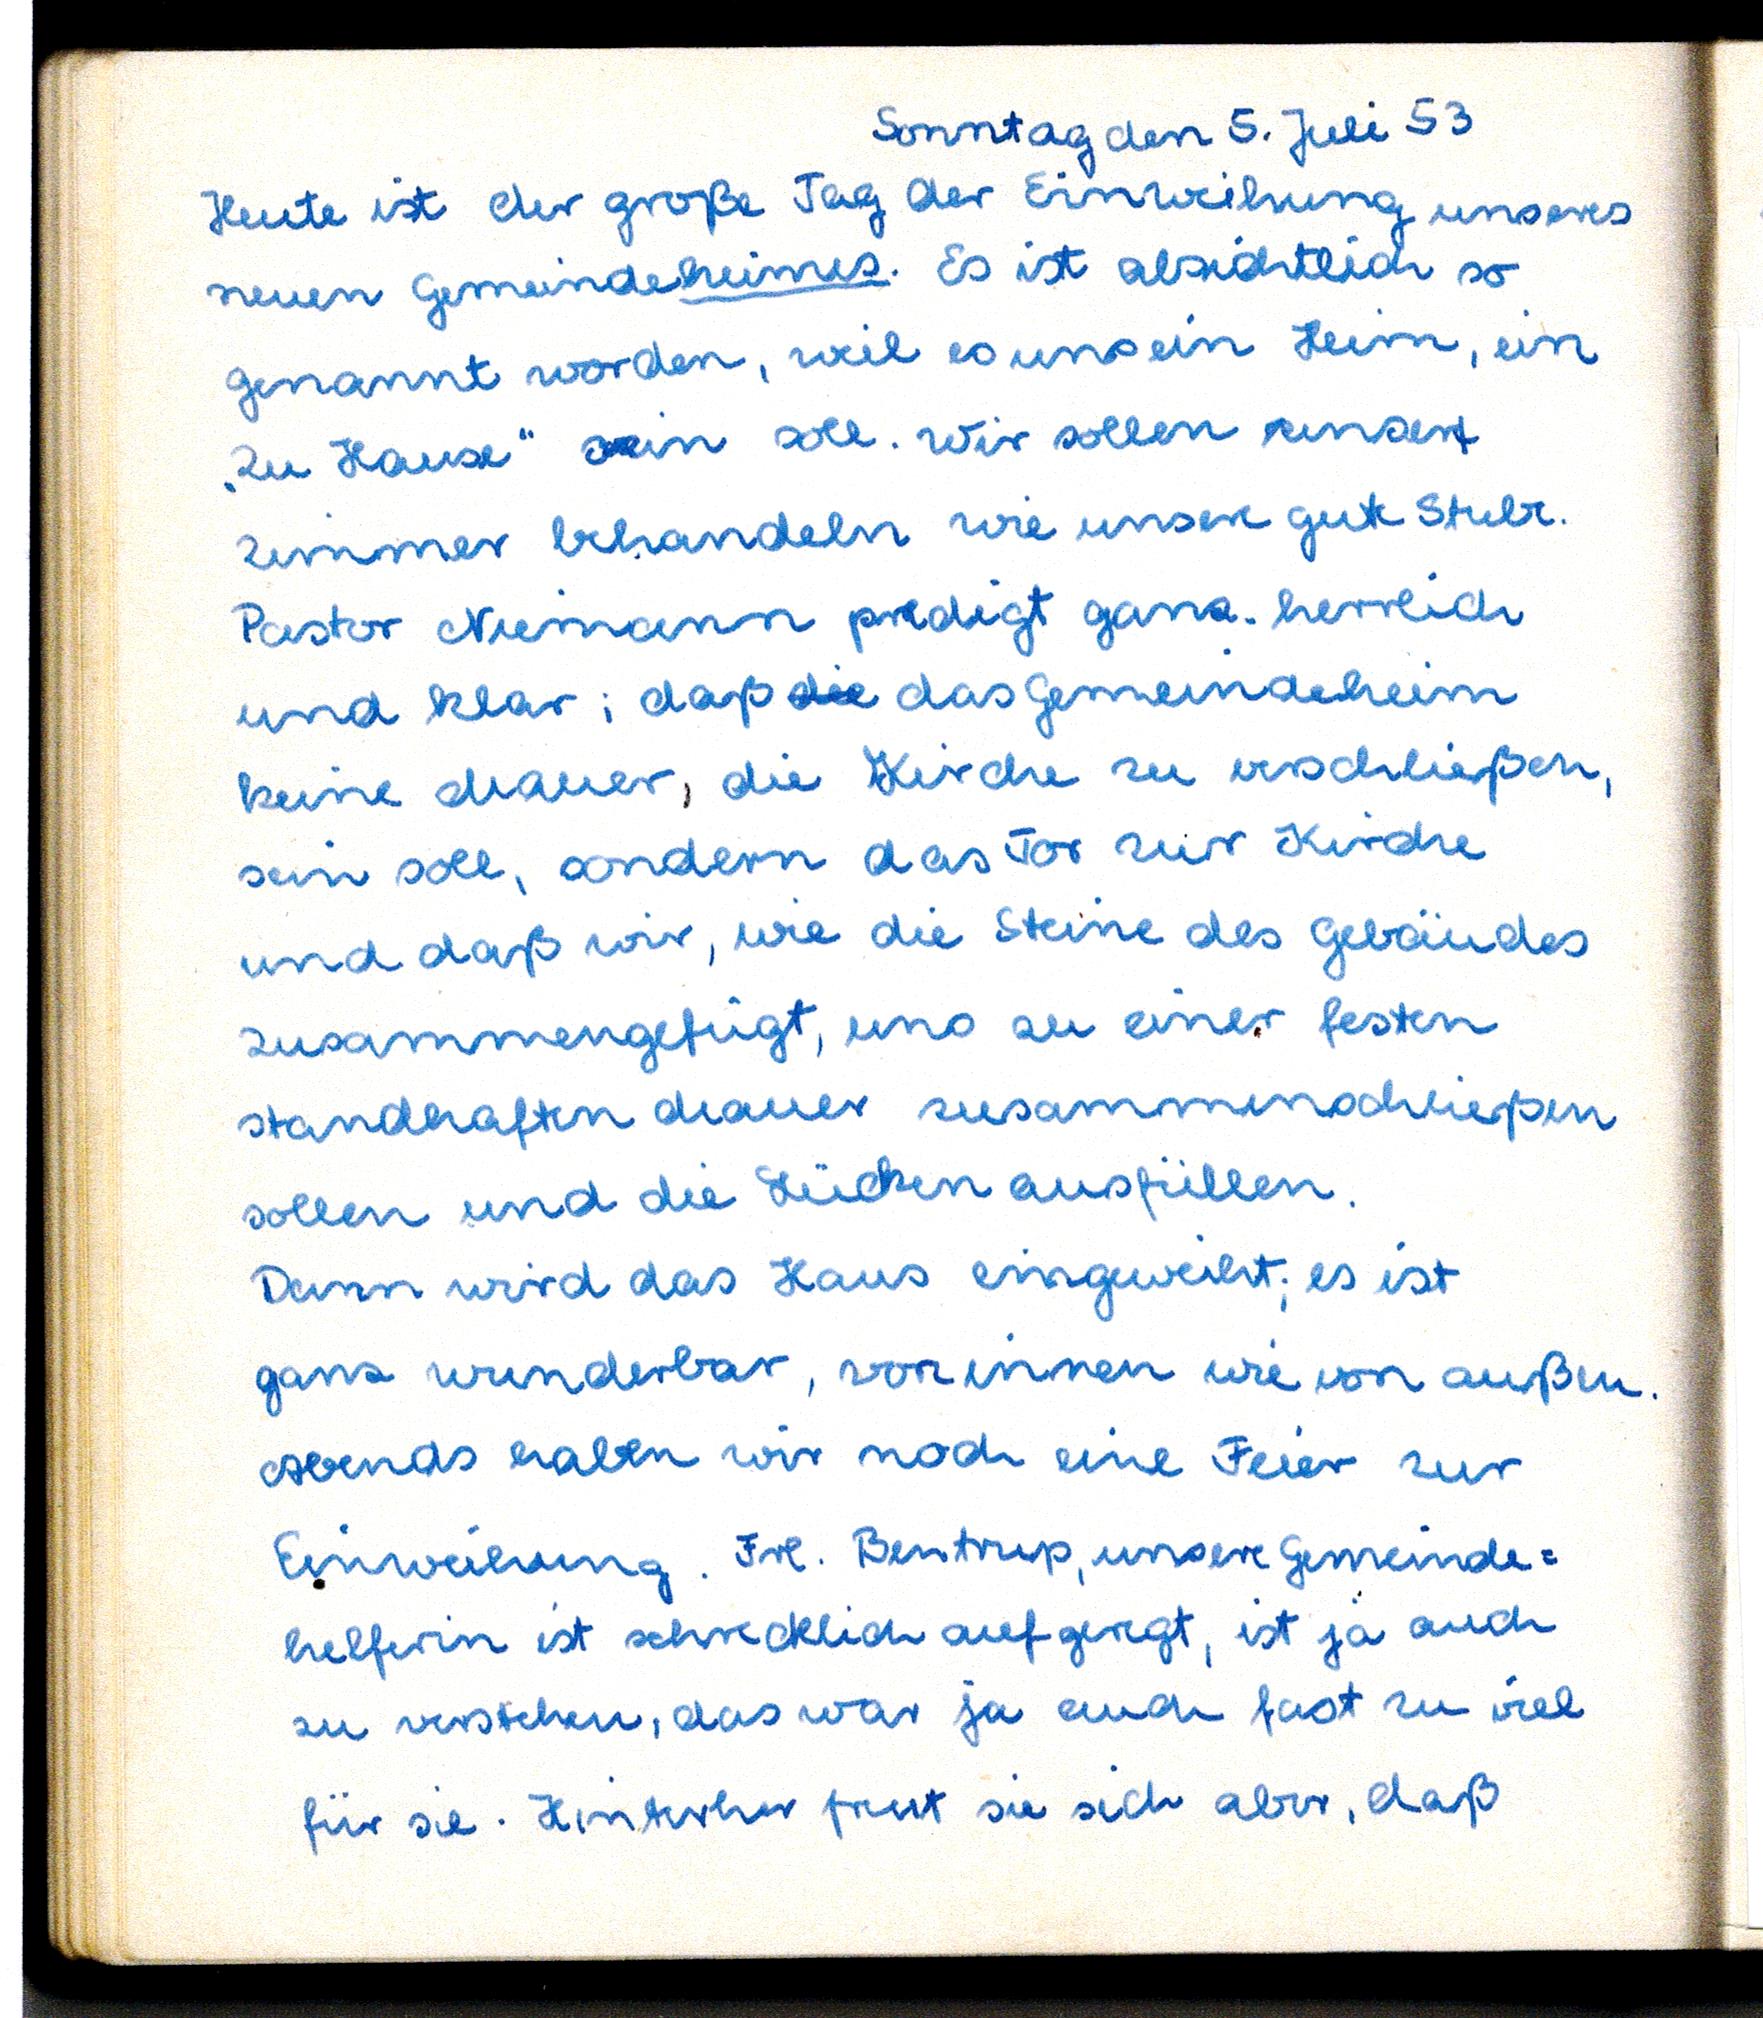 Sonntag den 5. Juli 53
Heute ist der große Tag der Einweihung unseres
neuen Gemeindeheimes. Es ist absichtlich so
genannt worden, weil es uns ein Heim, ein
„zu Hause" sein soll. Wir sollen unsere
Zimmer behandeln wie unsere gute Stube.
Pastor Niemann predigt ganz herrlich
und klar; daß die das Gemeindeheim
keine Mauer, die Kirche zu verschließen,
sein soll, sondern das Tor zur Kirche
und daß wir, wie die Steine des Gebäudes
zusammengefügt, uns zu einer festen
standhaften Mauer zusammenschließen
sollen und die Lücken ausfüllen.
Dann wird das Haus eingeweiht; es ist
ganz wunderbar, von innen wie von außen.
Abends haben wir noch eine Feier zur
Einweihung. Frl. Bentrup, unsere Gemeinde=
helferin ist schrecklich aufgeregt, ist ja auch
zu verstehen, das war ja auch fast zu viel
für sie. Hinterher freut sie sich aber, daß